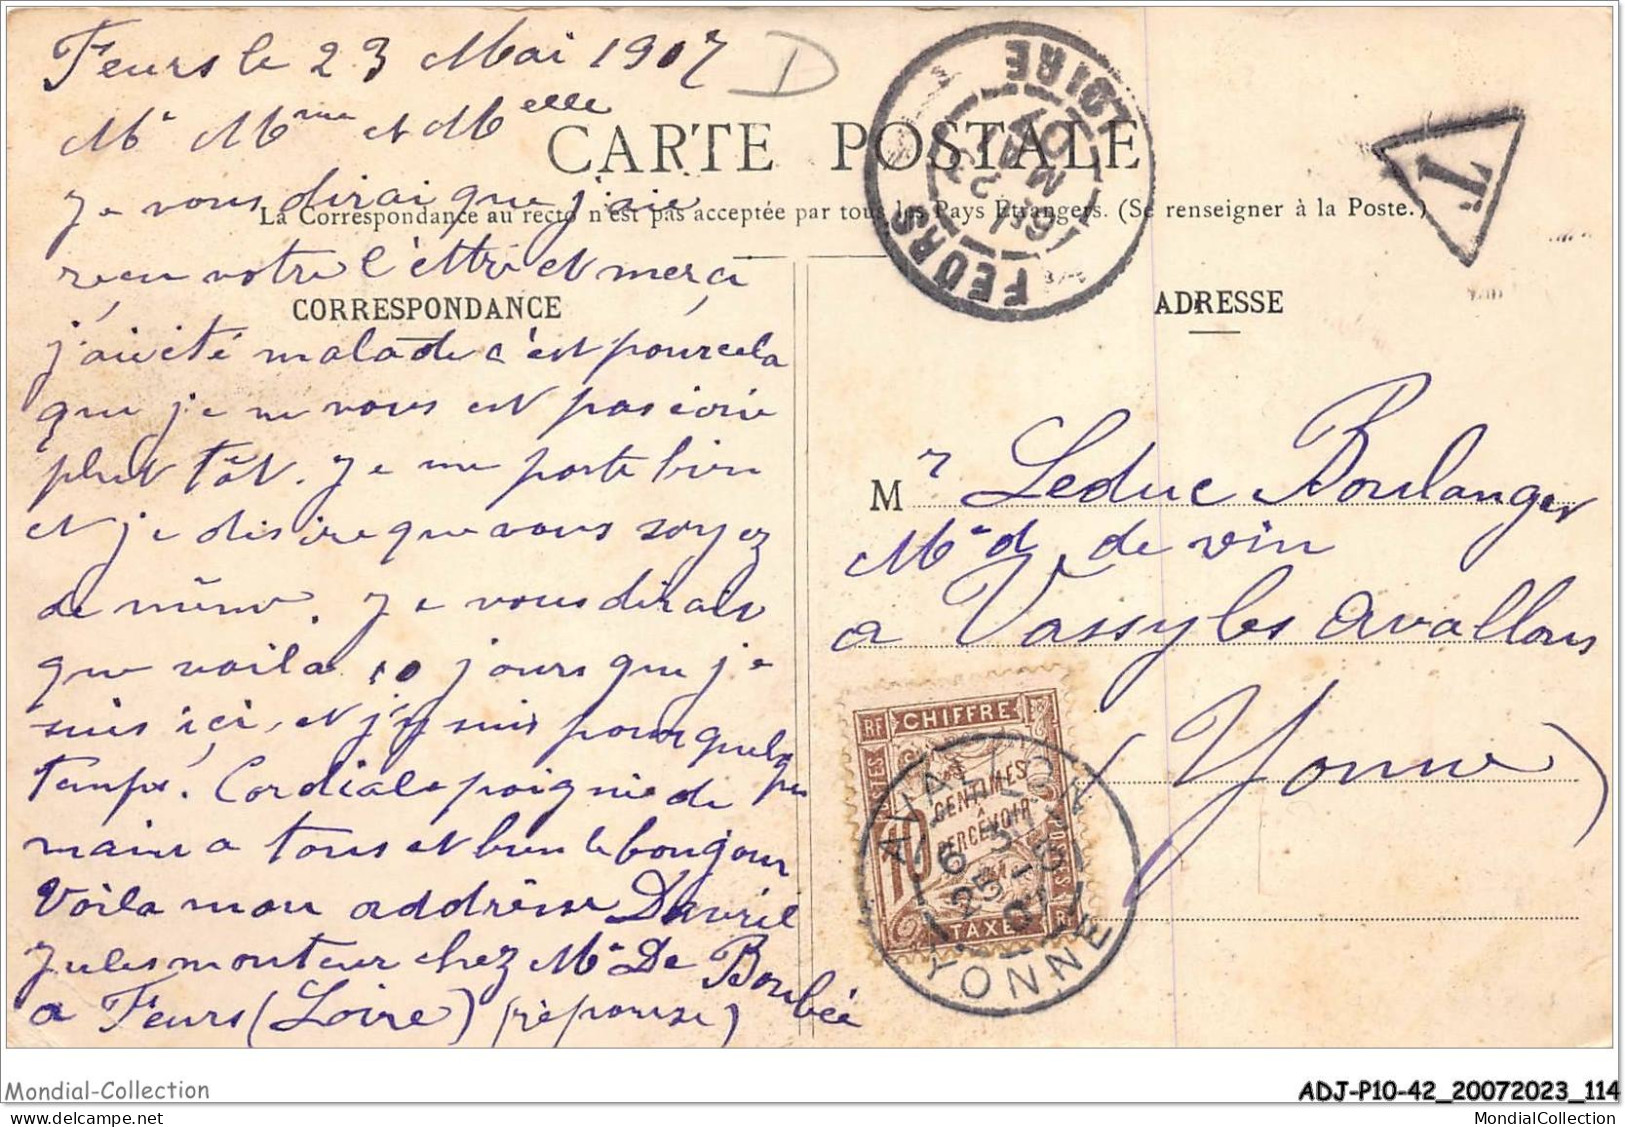 Feurs le 23 Mai 1907
D
Mr Mme et Melle
CARTE POSTALE
Je vous dirai que j'aie
La Correspondance au recto n'est pas acceptée par tous les Pays Étrangers. (Se renseigner à la Poste.)
recu votre l'èttre et merci
CORRESPONDANCE
j'ai été malade c'est pour cela
que je ne vous est pas écrie
plut tôt. Je me porte bien
et je désire que vous soyez
de même. Je vous dirais
que voila 10 jours que je
suis ici, et j'y suis pour quelque
temps. Cordiale poignie de
main a tous et bien le bonjour
Voila mon addrèsse Davril
Jules monteur chez Mr De Boubée
a Feurs (Loire) (réponse)
FEURS LOIRE
T
ADRESSE
M r Leduc Boulanger
Md de vin
a Vassy les Avallons
(Yonne)
RF CHIFFRE
10 CENTIMES
À
PERCEVOIR
POSTES
TAXE RF
AVALLON
6
25 -5
07
YONNE
Mondial-Collection
ADJ-P10-42_20072023_114
MondialCollection